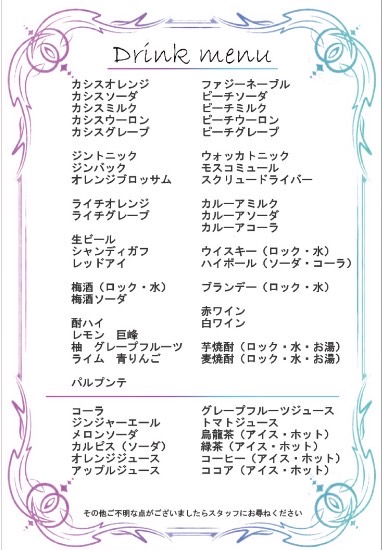 Drink menu
カシスオレンジ
カシスソーダ
カシスミルク
カシスウーロン
カシスグレープ
ジントニック
ジンバック
オレンジブロッサム
ライチオレンジ
ライチグレープ
生ビール
シャンディガフ
レッドアイ
梅酒（ロック・水）
梅酒ソーダ
酎ハイ
レモン　巨峰
柚　グレープフルーツ
ライム　青りんご
パルプンテ
ファジーネーブル
ピーチソーダ
ピーチミルク
ピーチウーロン
ピーチグレープ
ウォッカトニック
モスコミュール
スクリュードライバー
カルーアミルク
カルーアソーダ
カルーアコーラ
ウイスキー（ロック・水）
ハイボール（ソーダ・コーラ）
ブランデー（ロック・水）
赤ワイン
白ワイン
芋焼酎（ロック・水・お湯）
麦焼酎（ロック・水・お湯）
コーラ
ジンジャーエール
メロンソーダ
カルピス（ソーダ）
オレンジジュース
アップルジュース
グレープフルーツジュース
トマトジュース
烏龍茶（アイス・ホット）
緑茶（アイス・ホット）
コーヒー（アイス・ホット）
ココア（アイス・ホット）
その他ご不明な点がございましたらスタッフにお尋ねください